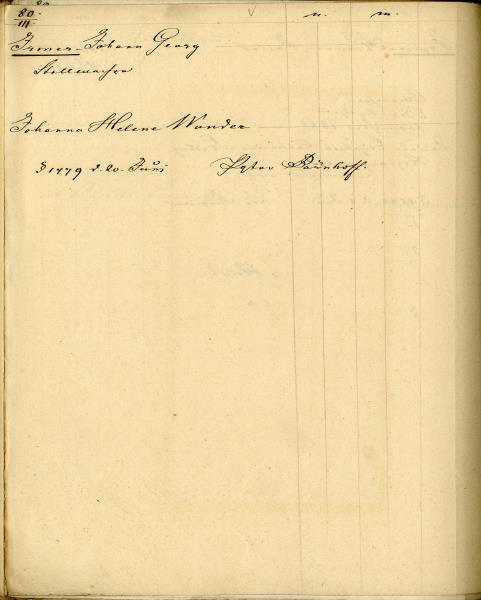 80. n. m.
III
Irmer Johann Georg
Stellmacher
Johanna Helene Wunder
1779 d. 20. Juni Peter